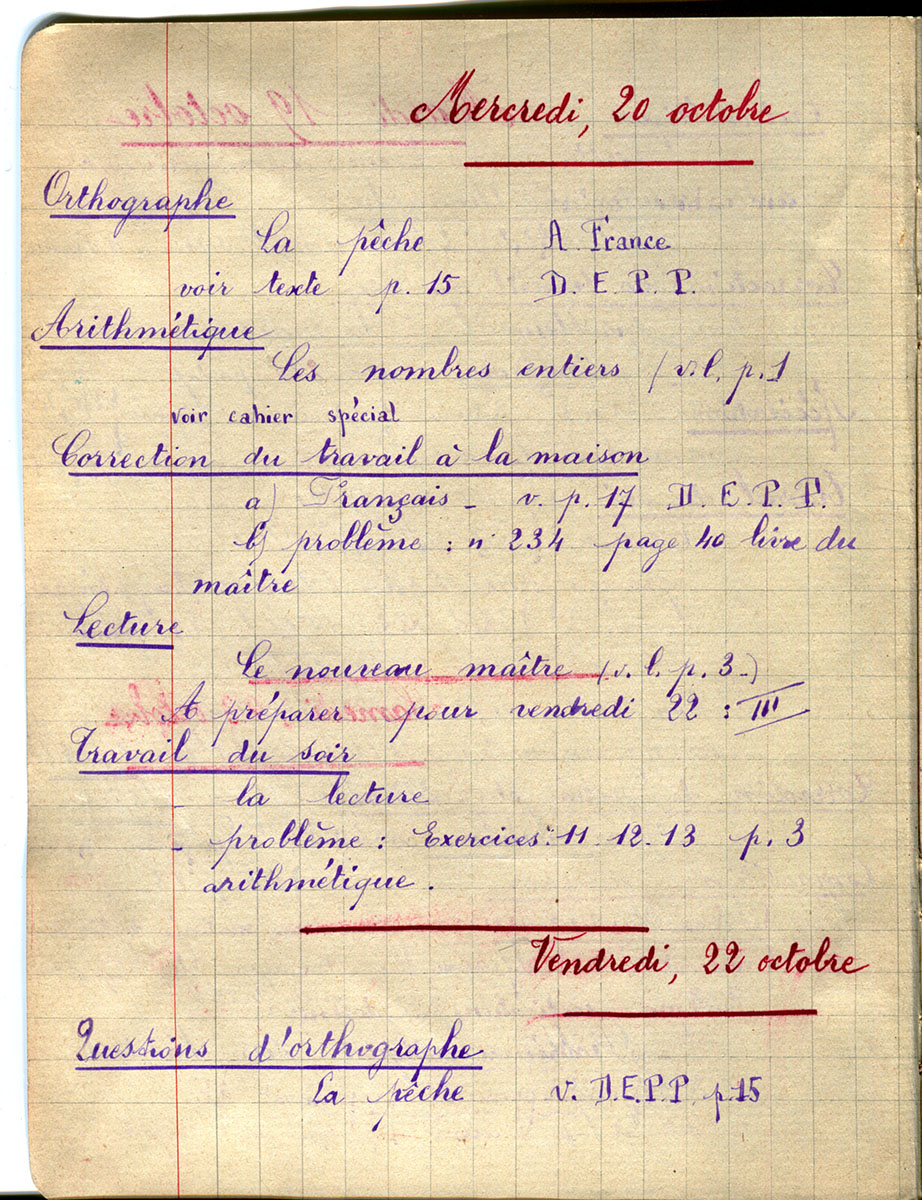 Mercredi, 20 octobre
Orthographe
La pêche A. France
voir texte p. 15 D. E. P. P.
Arithmétique
Les nombres entiers (v. l. p. 1
voir cahier spécial
Correction du travail à la maison
a) Français - v. p. 17 D. E. P. P.
b) problème : n° 234 page 40 livre du
maître
Lecture
Le nouveau maître (v. l. p. 3 -)
A préparer pour vendredi 22 : III
Travail du soir
- la lecture
- problème : Exercices : 11. 12. 13 p. 3
arithmétique.
Vendredi, 22 octobre
Questions d'orthographe
La pêche v. D.E.P.P. p. 15